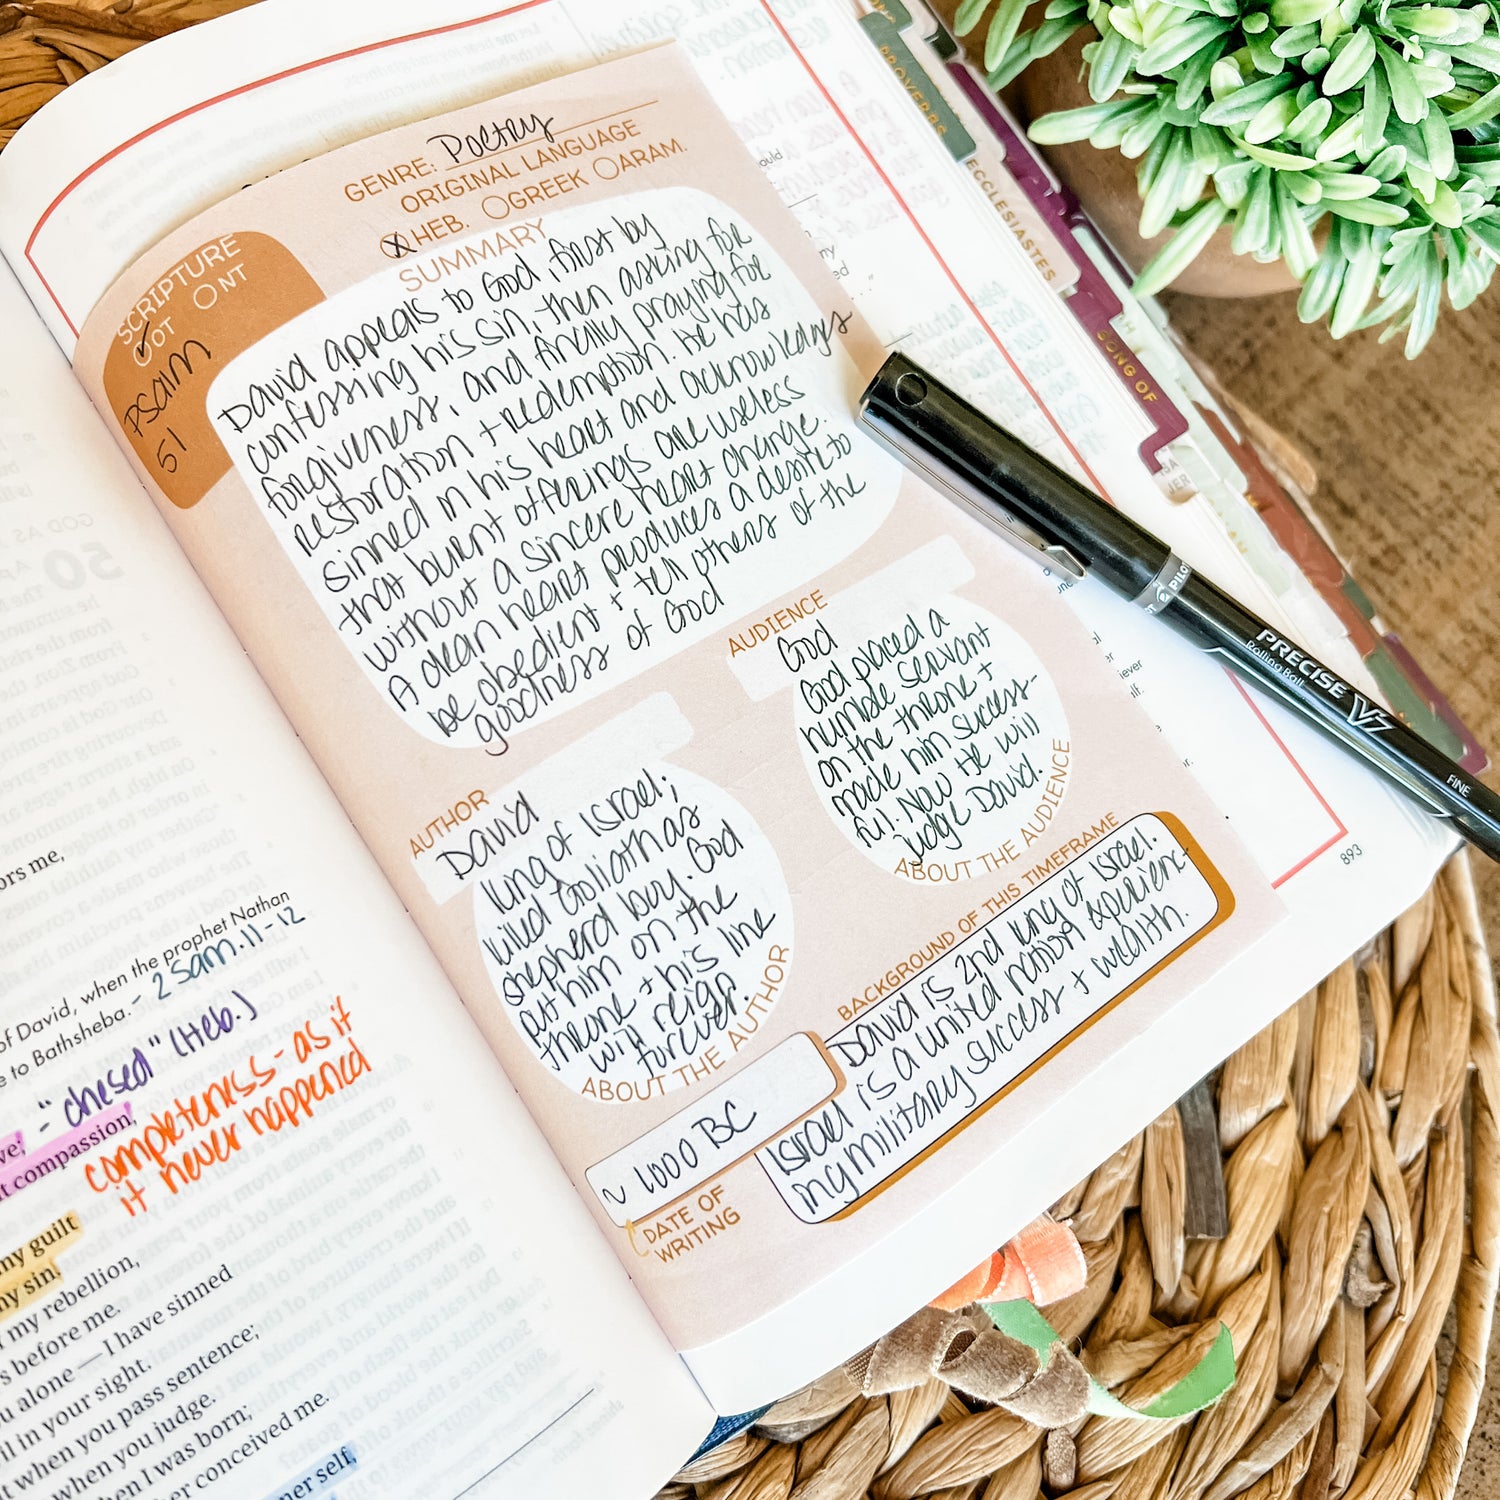 GENRE: Poetry
ORIGINAL LANGUAGE
HEB. GREEK ARAM.
SCRIPTURE
OT NT
Psalm
51
SUMMARY
David appeals to God, first by
confessing his sin, then asking for
forgiveness, and finally praying for
restoration + redemption. He has
sinned in his heart and acknowledges
that burnt offerings are useless
without a sincere heart change.
A clean heart produces a desire to
be obedient + tell others of the
goodness of God
AUDIENCE
God
God placed a
humble servant
on the throne +
made him success-
ful. Now He will
judge David.
ABOUT THE AUDIENCE
AUTHOR
David
King of Israel;
killed Goliath as
shepherd boy. God
put him on the
throne + his line
will reign
forever.
ABOUT THE AUTHOR
BACKGROUND OF THIS TIMEFRAME
David is 2nd king of Israel.
Israel is a united nation experienc-
ing military success + wealth.
~ 1000 BC
DATE OF
WRITING
893
ors me,
of David, when the prophet Nathan
e to Bathsheba. - 2 Sam. 11-12
- "chesed" (Heb.)
ve;
t compassion,
completeness - as it
it never happened
my guilt
my sin.
my rebellion,
s before me.
u alone — I have sinned
il in your sight.
t when you pass sentence;
when you judge.
hen I was born;
her conceived me.
ner self,
PROVERBS
ECCLESIASTES
SONG OF
PILOT
PRECISE V7
Rolling Ball
FINE